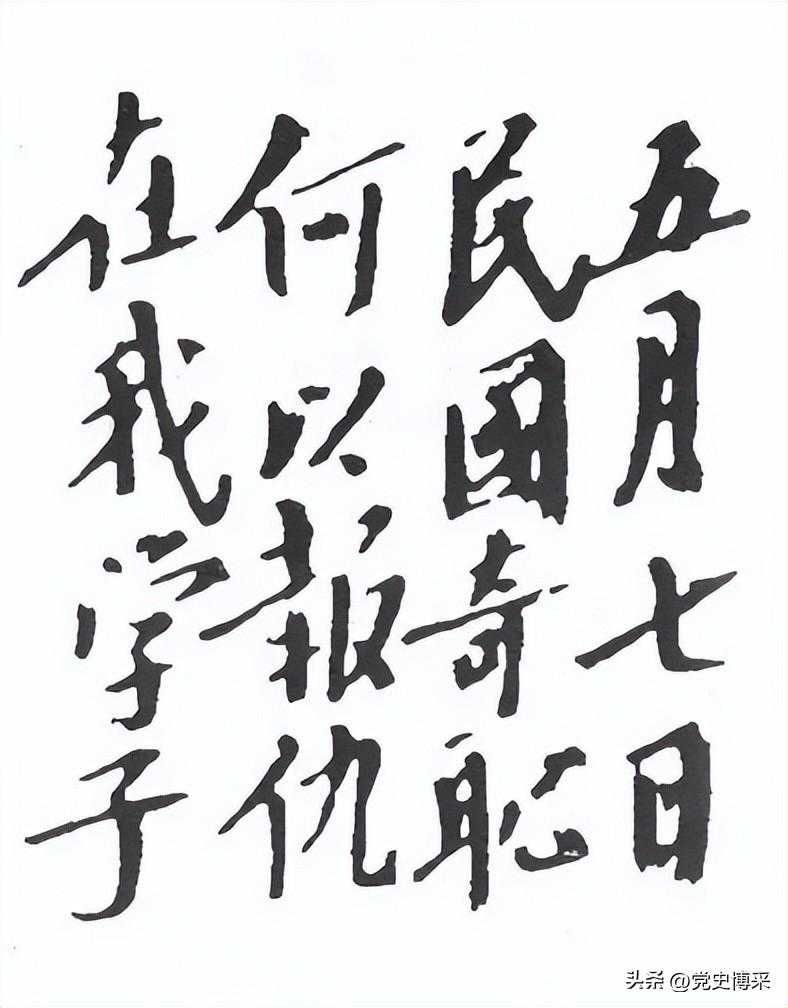 五月七日
民國奇恥
何以報仇
在我学子
头条 @党史博采